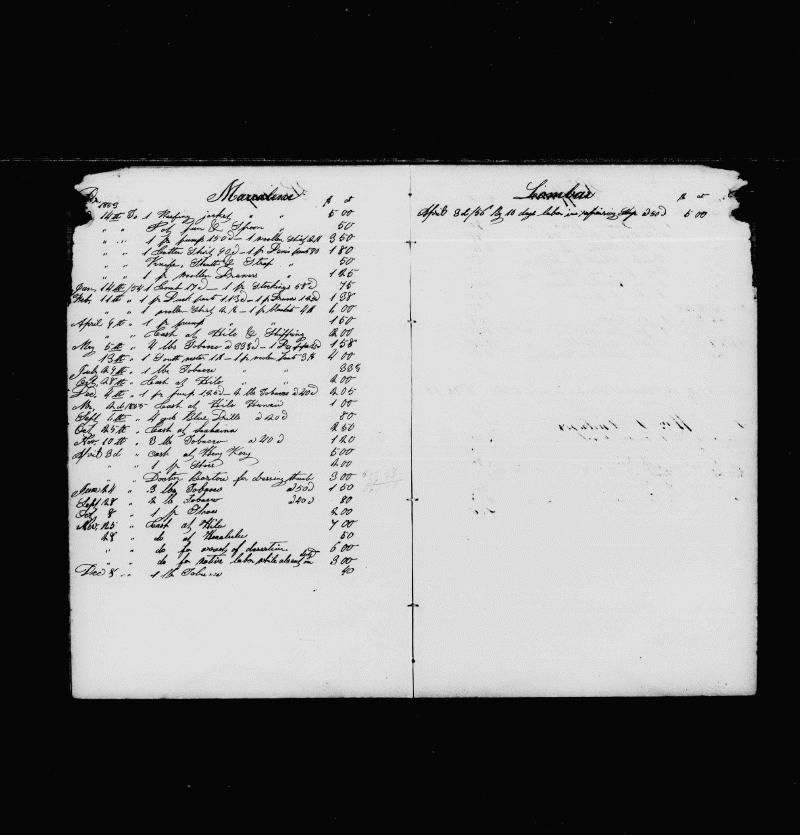 Dr Marcaline $ ct
1853
14th To 1 Monkey jacket " " 5 00
" " Pot, Pan & Spoon " 50
" " 1 pr pump 150 d - 1 woollen Shirt 2 $ 3 50
" " 1 Cotton Shirt 90 d - 1 pr Denim pants 90 1 80
" " Knife, Sheath & Strap " 50
" " 1 pr woollen Drawers " 1 25
Jan. 14th /54 1 17 d - 1 pr Stockings 58 d 75
Feb. 11th " 1 pr Duck pant 1.13 d - 1 pr 138
" " 1 woollen Shirt 2 $ - 1 pr 4 $ 6 00
April 9th " 1 pr pump " " 1 50
" " Cash at Hilo & Shipping 2 00
May 5th " 4 lbs Tobacco 1 58
13th " 1 South wester 1 $ - 1 pr 3 $ 4 00
July 29th " 1 lb Tobacco " 33 5
Oct. 28th " Cash at Hilo " " 2 00
Dec. 4th " 1 pr pump 125 d - 2 lbs Tobacco a 40 d 2 05
2d 1855 Cash at Hilo Hawaii 1 00
Sept 6th " 4 yds Blue Drills a 20 d 80
Oct 25th " Cash at Lahaina 2 50
Nov. 10th " 3 lb Tobacco a 40 d 1 20
April 3d " cash at Hong Kong 5 00
" " 1 pr Shoes 2 00
Doctor Barton for dressing 3 00
June 24 " 3 lbs Tobacco a 50 d 1 50
Sept 28 " 2 lb Tobacco a 40 d 80
Oct 8 " 1 pr Shoes 2 00
Nov. 25 " Cash at Hilo 7 00
28 " do at Honolulu 50
" " do for of desertion 6 00
" " do for native labor while absent 3 00
Dec 8 " 1 lb Tobacco 40
Lombar $ ct
April 3d /56 By 10 days labor in repairing Ship a 50 d 5 00